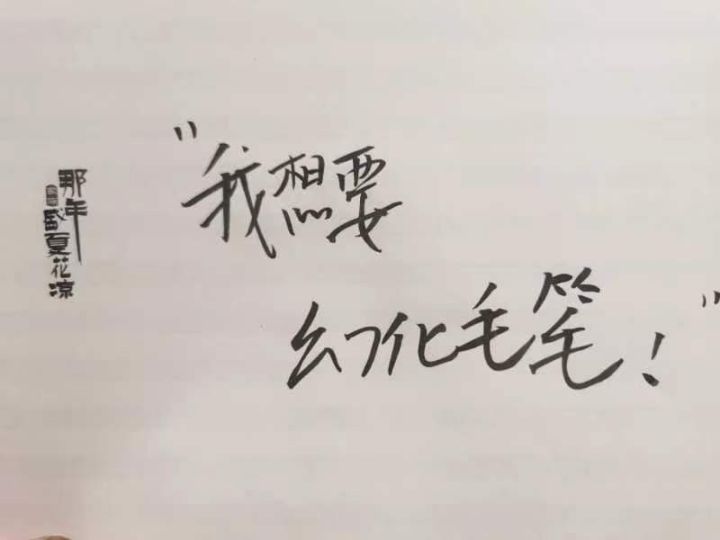 "我想要
幻化毛笔！"
那年
盛夏花凉